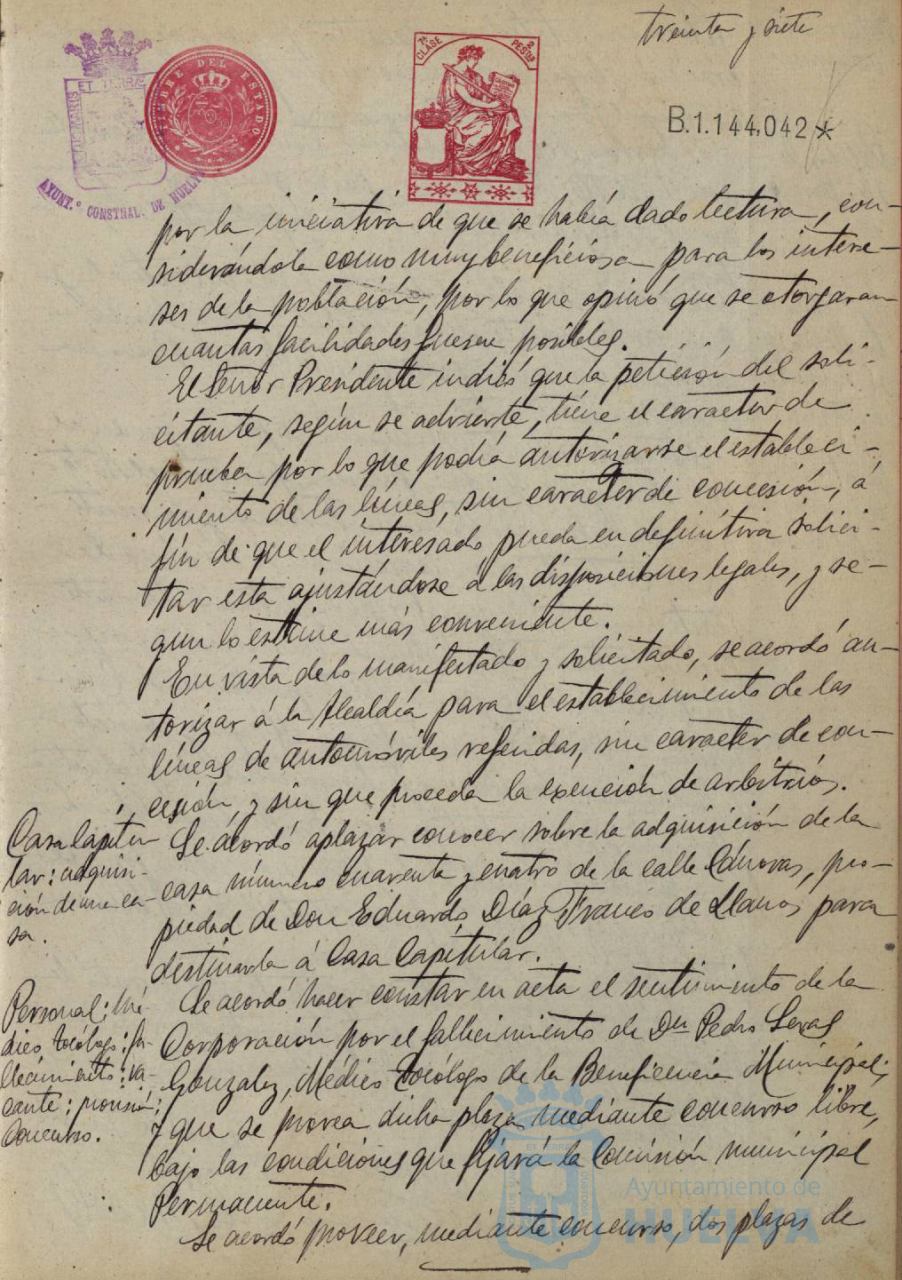 treinta y siete
7ª CLASE 2 PESTAS
TIMBRE DEL ESTADO
B.1.144.042*
AYUNT.º CONSTNAL. DE HUELVA
por la iniciativa de que se había dado lectura, con-
siderándola como muy beneficiosa para los intere-
ses de la población, por lo que opinó que se otorgaran
cuantas facilidades fuesen posibles.
El Señor Presidente indicó que la petición del soli-
citante, según se advierte, tiene el caracter de
prueba por lo que podía autorizarse el estableci-
miento de las líneas, sin caracter de concesión, á
fin de que el interesado pueda en definitiva solici-
tar esta ajustándose a las disposiciones legales, y se-
gun lo estime más conveniente.
En vista de lo manifestado y solicitado, se acordó au-
torizar á la Alcaldía para el establecimiento de las
líneas de automóviles referidas, sin caracter de con-
cesión, y sin que proceda la exención de arbitrios.
Casa Capitu
lar: adquisi-
ción de una ca-
sa.
Se acordó aplazar conocer sobre la adquisición de la
casa número cuarenta y cuatro de la calle Cánovas, pro-
piedad de Don Eduardo Díaz Franco de Llanos para
destinarla á Casa Capitular.
Personal: Mé
dico tocólogo: fa-
llecimiento: va-
cante; provisión;
Concurso.
Se acordó hacer constar en acta el sentimiento de la
Corporación por el fallecimiento de Don Pedro Seras
Gonzalez, Médico Tocólogo de la Beneficencia Municipal;
y que se provea dicha plaza mediante concurso libre,
bajo las condiciones que fijará la Comisión municipal
Permanente.
Se acordó proveer, mediante concurso, dos plazas de
Ayuntamiento de
HUELVA